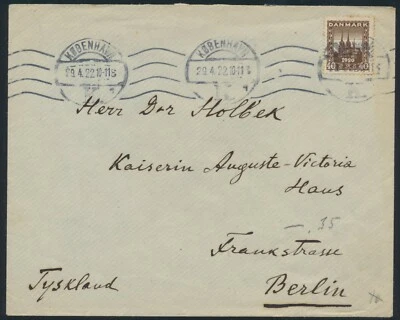 KØBENHAVN KØBENHAVN
29.4.22.10-11 S 29.4.22.10-11 S
DANMARK
1920
40 40
Herr Dor Holbek
Kaiserin Auguste-Victoria
Haus
—.35
Frankstrasse
Tyskland
Berlin